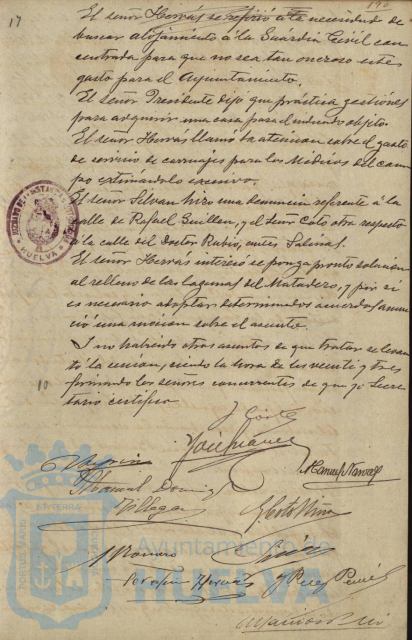 17
El señor Hervás se refirió a la necesidad de
buscar alojamiento á la Guardia Civil con
centrada para que no sea tan oneroso este
gasto para el Ayuntamiento.
El señor Presidente dijo que práctica gestiones
para adquirir una casa para el indicado objeto.
El señor Hervás llamó la atención sobre el gasto
de servicio de carruajes para los Médicos del cam
po estimándolo excesivo.
El señor Silván hizo una denuncia referente á la
calle de Rafael Guillen, y el señor Coto otra respecto
á la calle del Doctor Rubio, antes Salinas.
El señor Hervás interesó se ponga pronto solución
al relleno de las Lagunas del Matadero, y por si
es necesario adoptar determinados acuerdos anun
ció una moción sobre el asunto.
Y no habiendo otros asuntos de que tratar se levan
tó la sesión, siendo la hora de las veinte y tres
firmando los señores concurrentes de que yo Secre
tario certifico.
10
José Suarez
Manuel Narvaez
Manuel Domin
Villegas
J. Coto Mora
Romero
Serafin Hervás
HUELVA
Ayuntamiento de
HUELVA